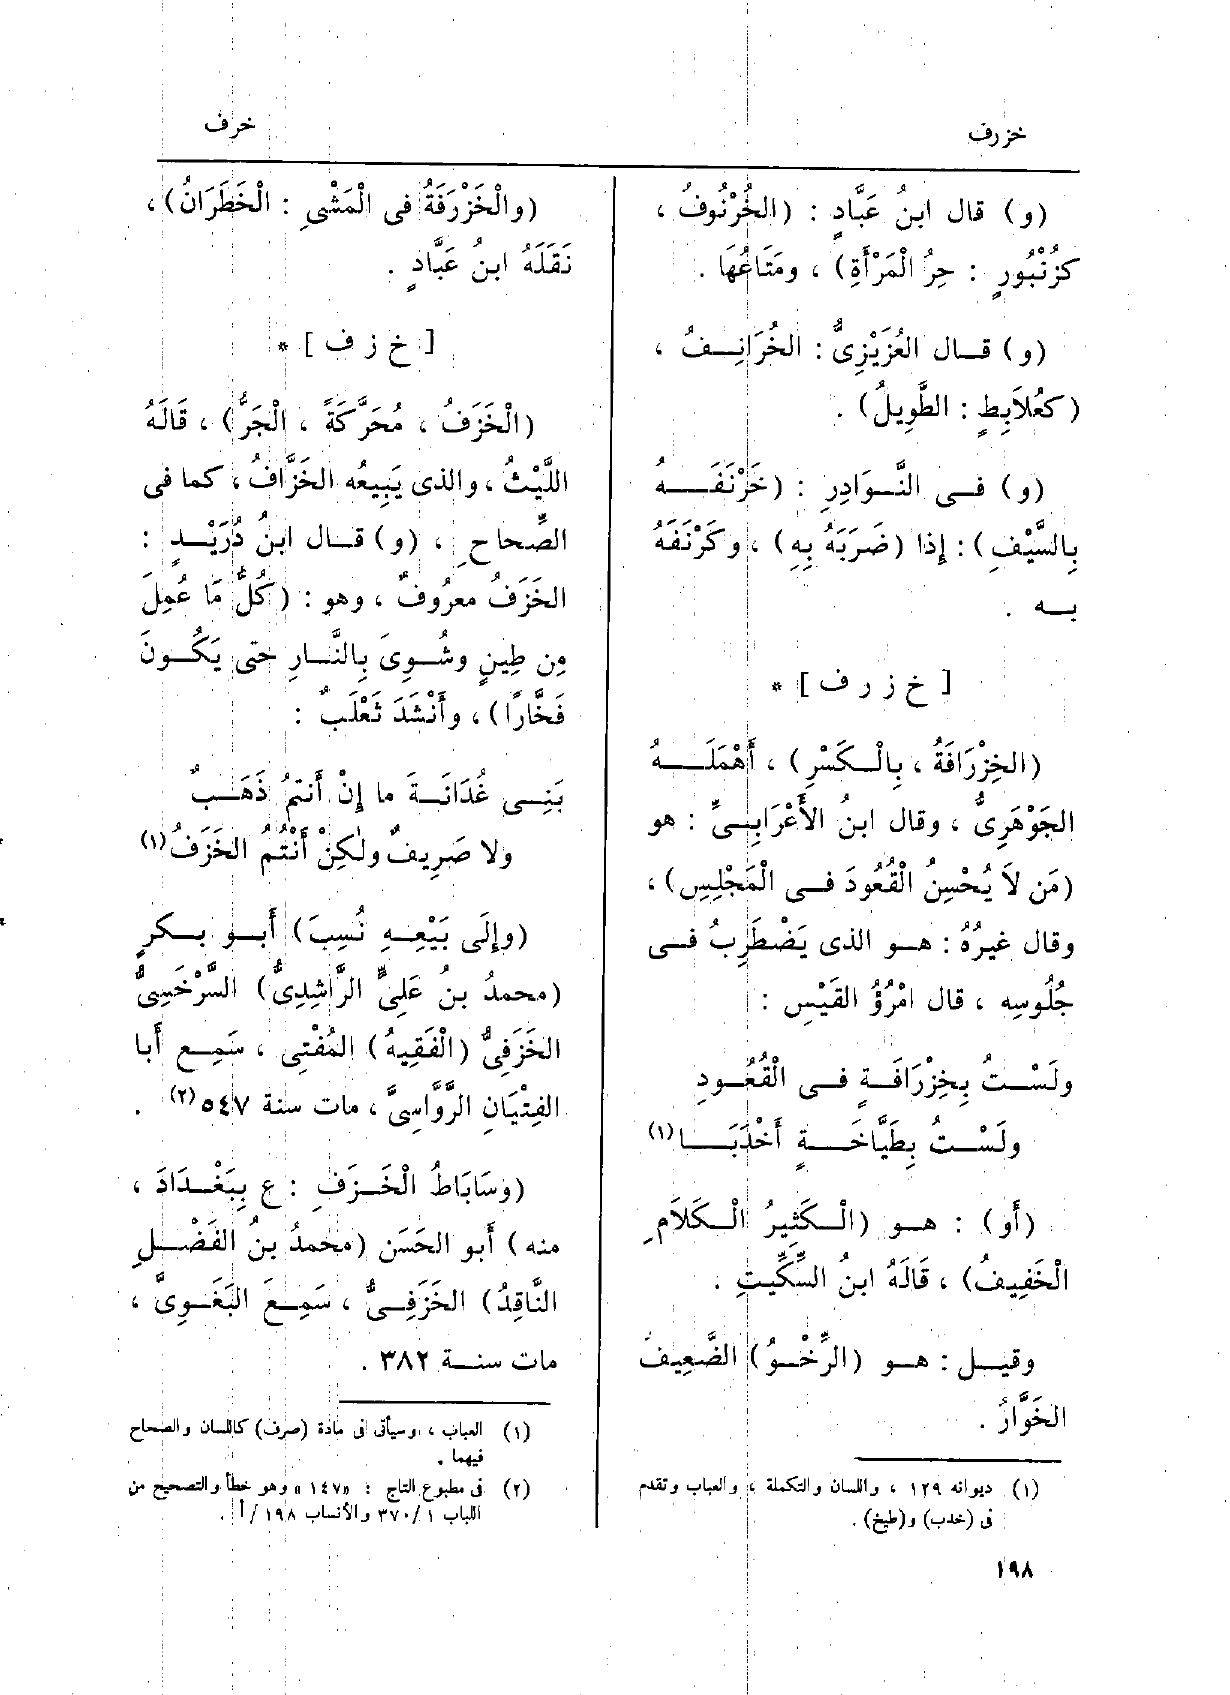 خزرف
خرف
(و) قال ابنُ عَبَّادٍ : (الخُرْنُوفُ ،
كزُنْبُورٍ : حِرُ الْمَرْأَةِ) ، ومَتَاعُهَا .
(و) قــال العُزَيْزِىُّ : الخُرَانِــفُ ،
(كعُلاَبِطٍ : الطَّوِيلُ) .
(و) فــى النَّــوَادِرِ : (خَرْنَفَــهُ
بِالسَّيْفِ) : إذا (ضَرَبَهُ بِهِ) ، وكَرْنَفَهُ
بــه .
[ خ ز ر ف ] *
(الخِزْرَافَةُ ، بِالْــكَسْرِ) ، أَهْمَلَــهُ
الجَوْهَرِىُّ ، وقال ابنُ الأَعْرَابِــىِّ : هو
(مَن لاَ يُحْسِنُ الْقُعُودَ فــى الْمَجْلِسِ) ،
وقال غيرُهُ : هــو الذى يَضْطَرِبُ فــى
جُلُوسِه ، قال امْرُؤُ القَيْسِ :
ولَسْــتُ بِخِزْرَافَــةٍ فــى الْقُعُــودِ
ولَسْــتُ بِطَيَّاخَــةٍ أَخْدَبَــا (١)
(أَو) : هــو (الْــكَثِيرُ الْــكَلاَمِ
الْخَفِيفُ) ، قَالَهُ ابنُ السِّكِّيتِ .
وقيــل : هــو (الرِّخْــوُ) الضَّعِيفُ
الخَوَّارُ .
(١) ديوانه ١٢٩ ، واللسان والتكملة ، والعباب وتقدم
فى (خدب) و(طيخ) .
١٩٨
(والْخَزْرَفَةُ فى الْمَشْىِ : الْخَطَرَانُ) ،
نَقَلَهُ ابنُ عَبَّادٍ .
[ خ ز ف ] *
(الْخَزَفُ ، مُحَرَّكَةً ، الْجَرُّ) ، قَالَهُ
اللَّيْثُ ، والذى يَبِيعُه الخَزَّافُ ، كما فى
الصِّحاحِ ، (و) قــال ابنُ دُرَيْــدٍ :
الخَزَفُ معرُوفٌ ، وهو : (كُلُّ مَّا عُمِلَ
مِن طِينٍ وشُــوِىَ بِالنَّــارِ حتى يَكُــونَ
فَخَّارًا) ، وأَنْشَدَ ثَعْلَبٌ :
بَنِــى غُدَانَــةَ ما إِنْ أَنتمُ ذَهَــبٌ
ولا صَرِيفٌ ولٰكِنْ أَنْتُمُ الخَزَفُ (١)
(وإِلَى بَيْعِــهِ نُسِبَ) أَبــو بــكرٍ
(محمدُ بنُ عَلِىٍّ الرَّاشِدِىُّ) السَّرْخَسِىُّ
الخَزَفِىُّ (الْفَقِيهُ) المُفْتِى ، سَمِــع أَبا
الفِتْيَانِ الرَّوَّاسِىَّ ، مات سنة ٥٤٧ (٢) .
(وسَابَاطُ الْخَــزَفِ : ع بِبَغْــدَادَ ،
منه) أَبو الحَسَن (محمدُ بنُ الفَضْــلِ
النَّاقِدُ) الخَزَفِــىُّ ، سَمِــعَ البَغَــوِىَّ ،
مات سنــة ٣٨٢ .
(١) العباب ، وسيأتى فى مادة (صرف) كاللسان والصحاح
فيهما .
(٢) فى مطبوع التاج : «١٤٧» وهو خطأ والتصحيح من
اللباب ١/٣٧٠ والأنساب ١٩٨/أ .